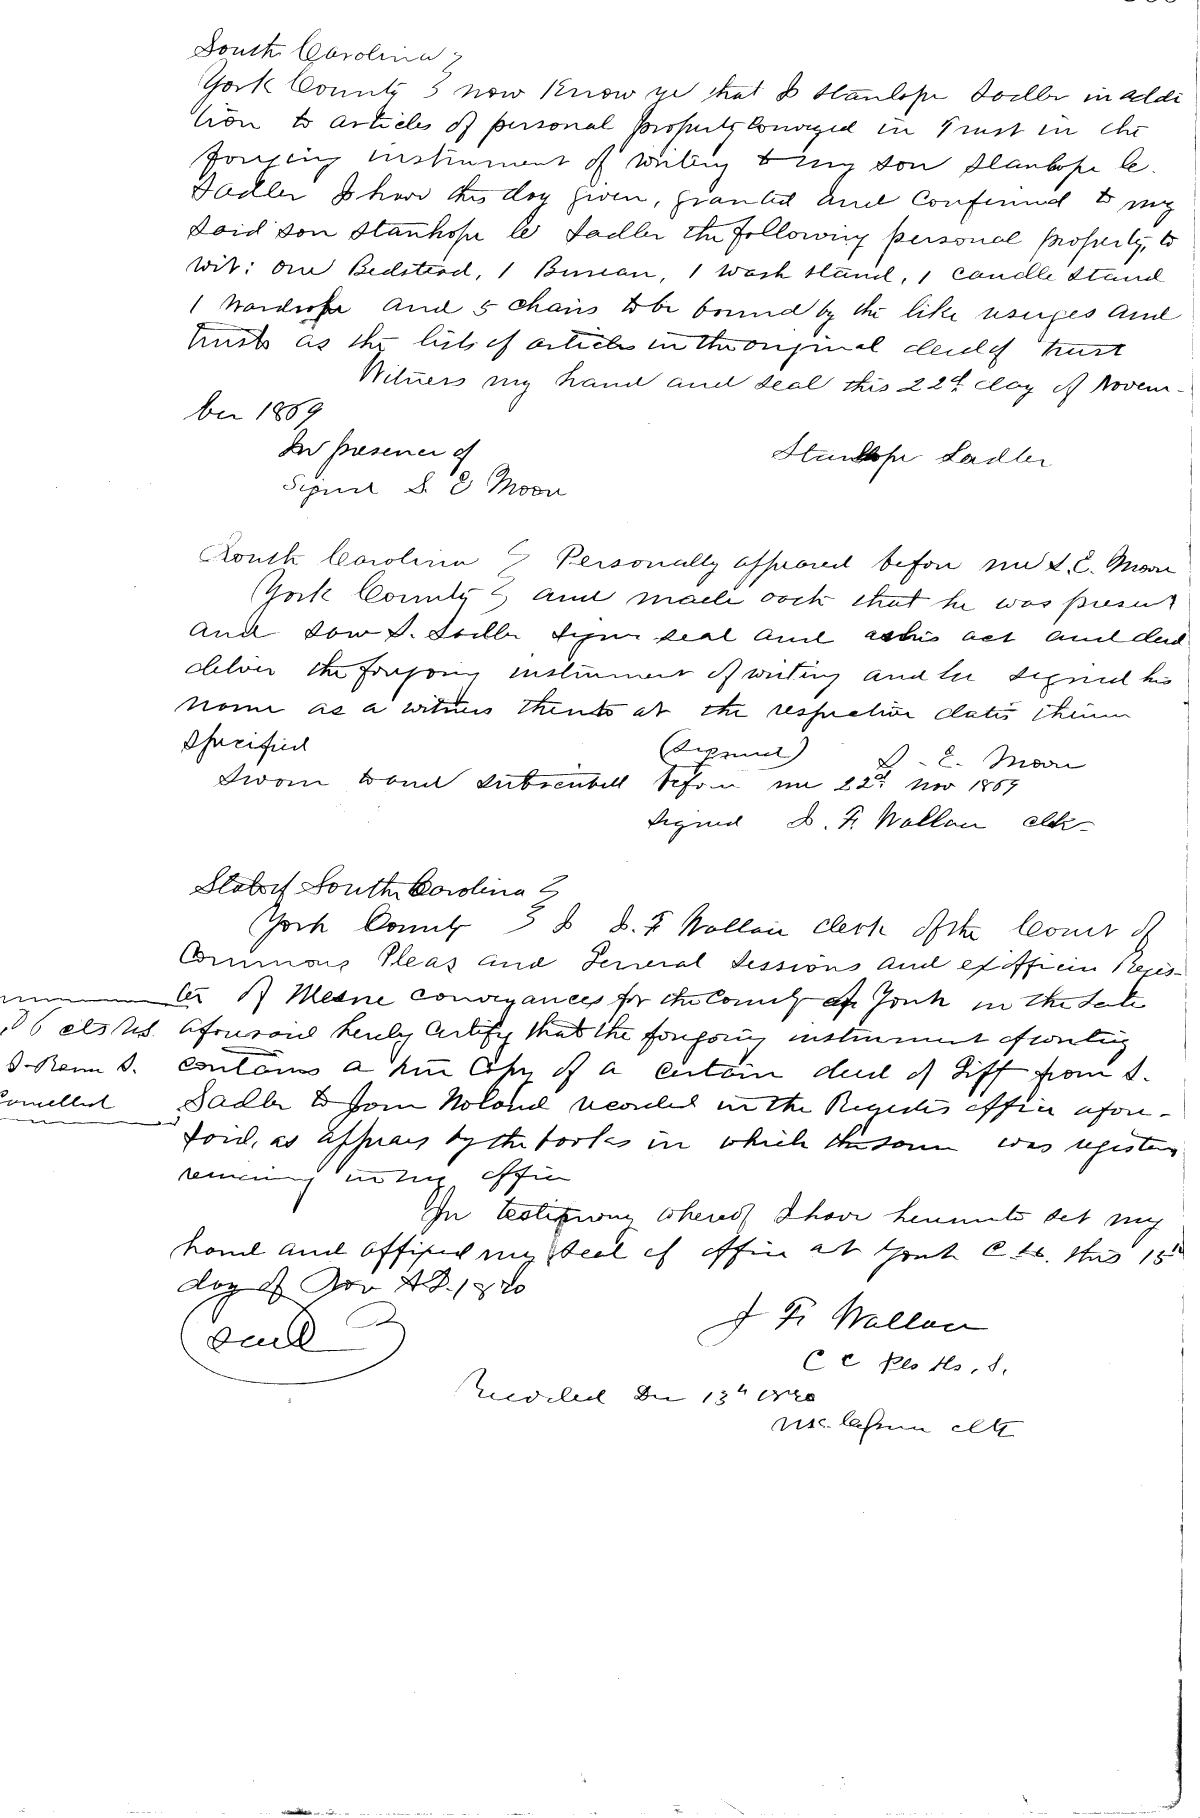 South Carolina }
York County } now Know ye that I Stanhope Sadler in addi
tion to articles of personal property Conveyed in Trust in the
forgoing instrument of writing to my son Stanhope C.
Sadler I have this day given, granted and Confirmed to my
said son Stanhope C Sadler the following personal property, to
wit: one Bedstead, 1 Bureau, 1 wash stand, 1 candle stand
1 Wardrope and 5 chairs to be bound by the like usuges and
trusts as the lists of articles in the original deed of trust
Witness my hand and seal this 22d day of Novem-
ber 1869
In presence of
Stanhope Sadler
Signed S. E Moore
South Carolina } Personally appeared before me S. E. Moore
York County } and made oath that he was present
and saw S. Sadler sign seal and as his act and deed
deliver the forgoing instrument of writing and he signed his
name as a witness thereto at the respective dates therein
specified (Signed) S. E. Moore
Sworn to and subscribed before me 22d Nov 1869
Signed J. F. Wallace clk
State of South Carolina }
York County } I J. F Wallace clerk of the Court of
Commons Pleas and General Sessions and exofficio Regis-
ter of Mesne conveyances for the County of York in the State
6 cts
aforesaid hereby Certify that the forgoing instrument of writing
contains a true Copy of a certain deed of Giff from S.
Cancelled
Sadler to John Noland recorded in the Registers office afore-
said, as appears by the books in which the same was registers
remaining in my office
In testimony whereof I have hereunto set my
hand and affixed my seal of office at York C H. this 15th
day of Nov A.D. 1870
Seal
J F. Wallace
C C Pls
Recorded Dec 13th 1870
clk